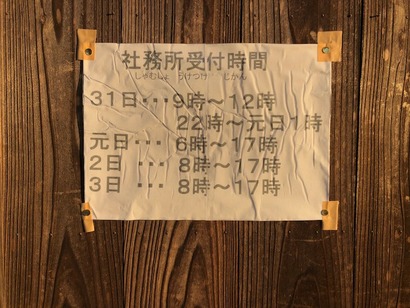 社務所受付時間
しゃむしょ うけつけ じかん
31日･･･9時～12時
22時～元日1時
元日･･･ 6時～17時
2日 ･･･ 8時～17時
3日 ･･･ 8時～17時